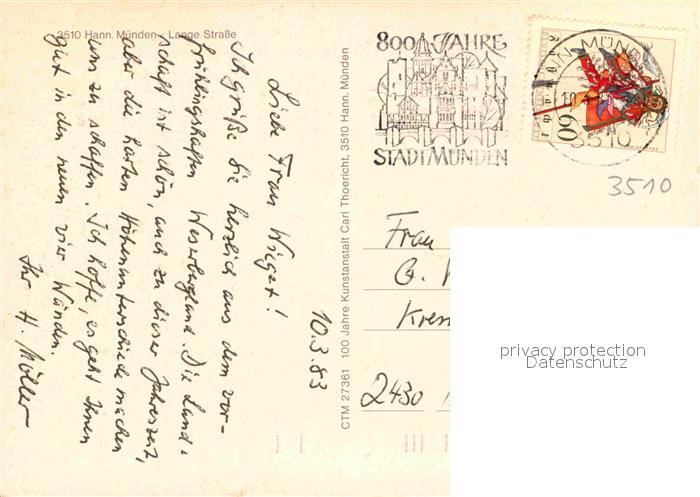 3510 Hann. Münden - Lange Straße
10.3.83
Liebe Frau Wieget!
Ich grüße Sie herzlich aus dem vor-
frühlinghaften Weserbergland. Die Land-
schaft ist schön, auch zu dieser Jahreszeit,
aber die harten Höhenunterschiede machen
uns zu schaffen. Ich hoffe, es geht Ihnen
gut in den neuen vier Wänden.
Ihr H. Möller
CTM 27361 100 Jahre Kunstanstalt Carl Thoericht, 3510 Hann. Münden
800 JAHRE
STADT MÜNDEN
MÜND
18
3510
60
3510
Frau
G.
Krem
2430
privacy protection
Datenschutz